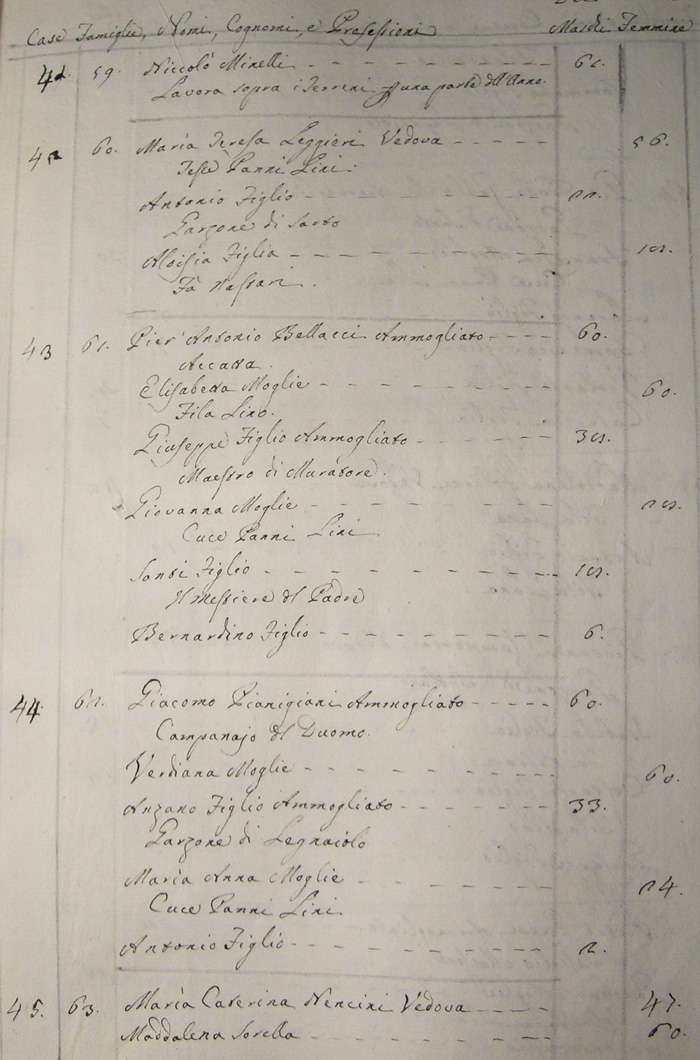 Case Famiglie, Nomi, Cognomi, e Professioni Maschi Femmine
59. Niccolò Minelli
Lavora sopra i Terreni una parte dell'Anno.
60. Maria Teresa Leggieri Vedova 56.
Tesse Panni Lini.
Antonio Figlio
Garzone di Sarto
Aloisia Figlia
Fà Nastri
43 61. Pier'Antonio Bellacci Ammogliato 60.
Accatta.
Elisabetta Moglie 60.
Fila Lino.
Giuseppe Figlio Ammogliato
Maestro di Muratore.
Giovanna Moglie
Cuce Panni Lini
Sansi Figlio
Il mestiere del Padre
Bernardino Figlio 6.
44 62. Giacomo Pianigiani Ammogliato 60.
Campanajo del Duomo.
Verdiana Moglie 60.
Anzano Figlio Ammogliato 33.
Garzone di Legnaiolo
Maria Anna Moglie 24.
Cuce Panni Lini
Antonio Figlio 2.
45. 63. Maria Caterina Nencini Vedova 47.
Maddalena Sorella 60.